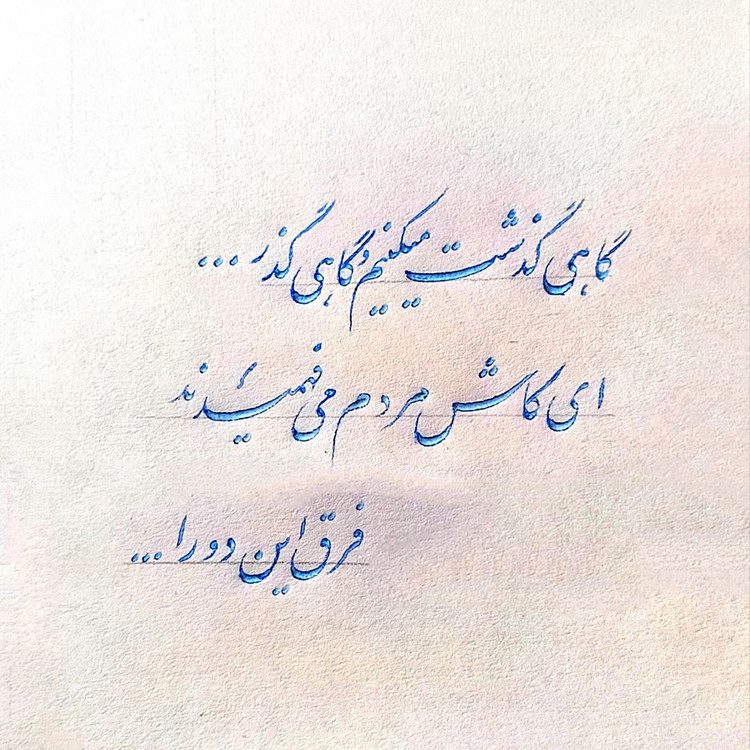 گاهی گذشت میکنیم و گاهی گذر...
ای کاش مردم می فهمیدند
فرق این دو را...